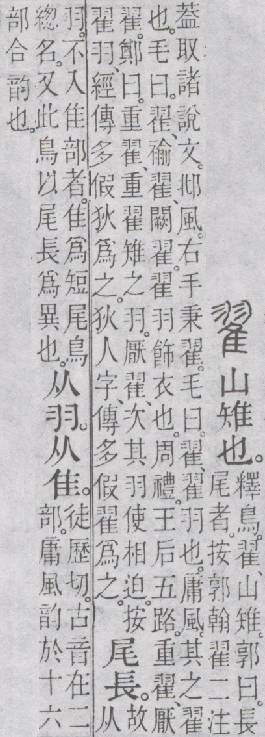 翟山雉也。
釋鳥。翟、山雉。郭曰。長
尾者。按郭翰翟二注
葢取諸說文。邶風。右手秉翟。毛曰。翟、翟羽也。庸風。其之翟
也。毛曰。翟、褕翟、闕翟。翟羽飾衣也。周禮。王后五路。重翟、厭
翟。鄭曰。重翟、重翟雉之羽。厭翟、次其羽使相迫。按
翟羽、經傳多假狄爲之。狄人字、傳多假翟爲之。
尾長。
故
从
羽。不入隹部者。隹爲短尾鳥
總名。又此鳥以尾長爲異也。
从羽。从隹。
徒歷切。古音在二
部。庸風韵於十六
部合韵也。